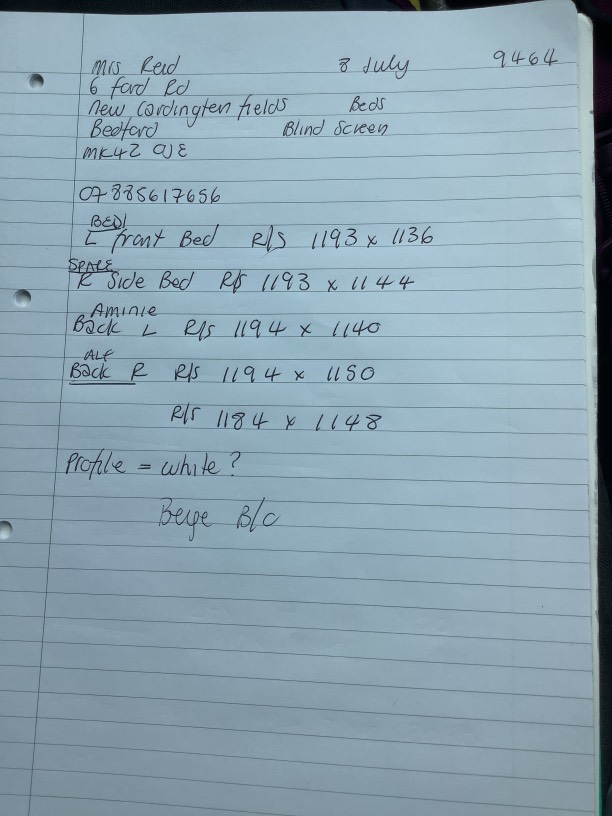 Mrs Reid 8 July 9464
6 Ford Rd
New Cardington fields Beds
Bedford Blind Screen
MK42 0JE
07885617656
BED1
L front Bed R/S 1193 x 1136
SPARE
R Side Bed R/S 1193 x 1144
Aminie
Back L R/s 1194 x 1140
ALF
Back R R/s 1194 x 1150
R/s 1184 x 1148
Profile = white?
Beige B/C